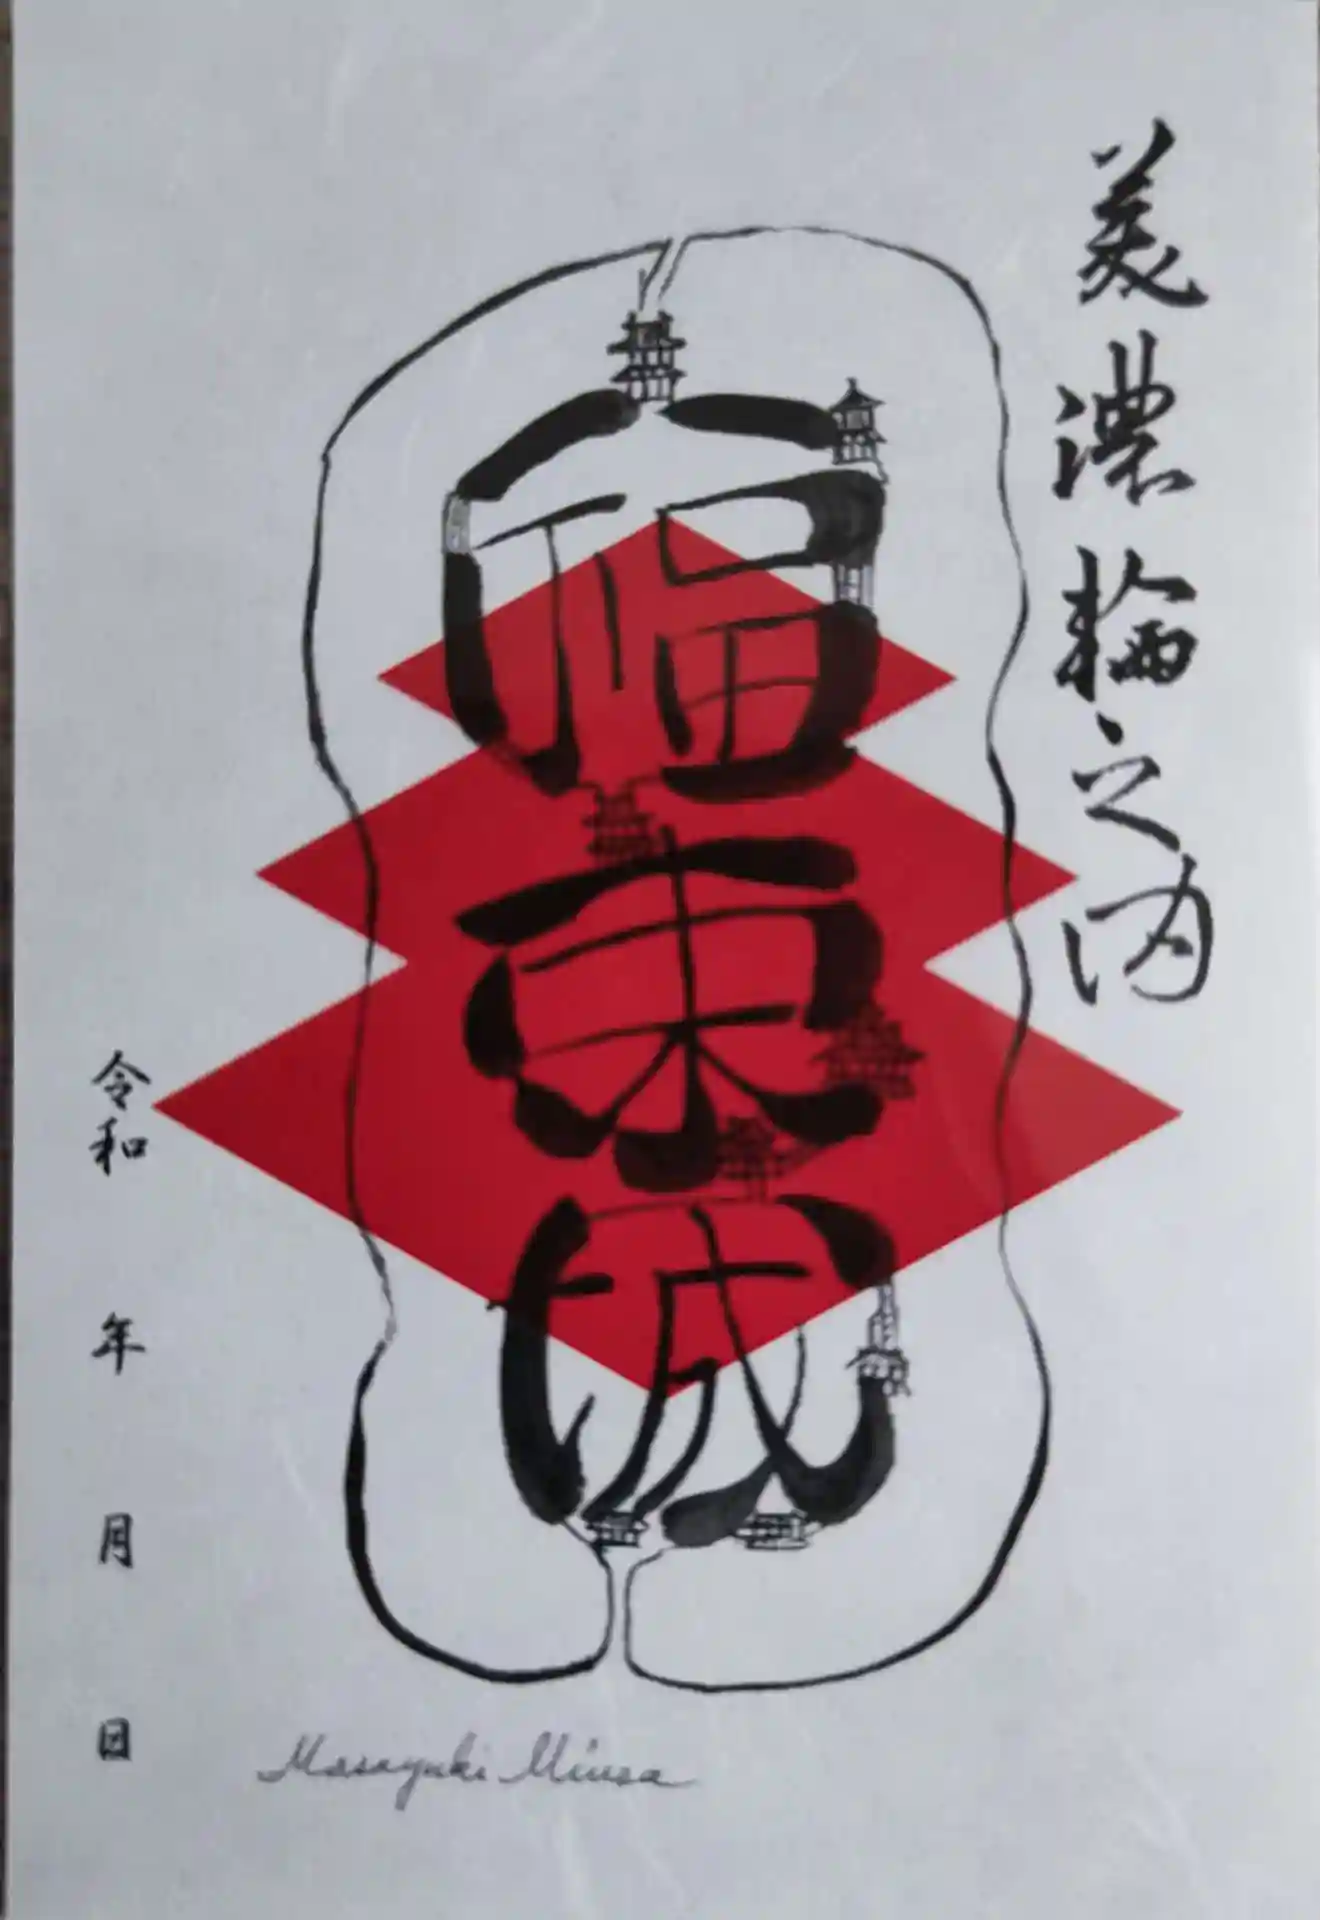 美濃輪之内
福束城
令和 年 月 日
Masayuki Miura